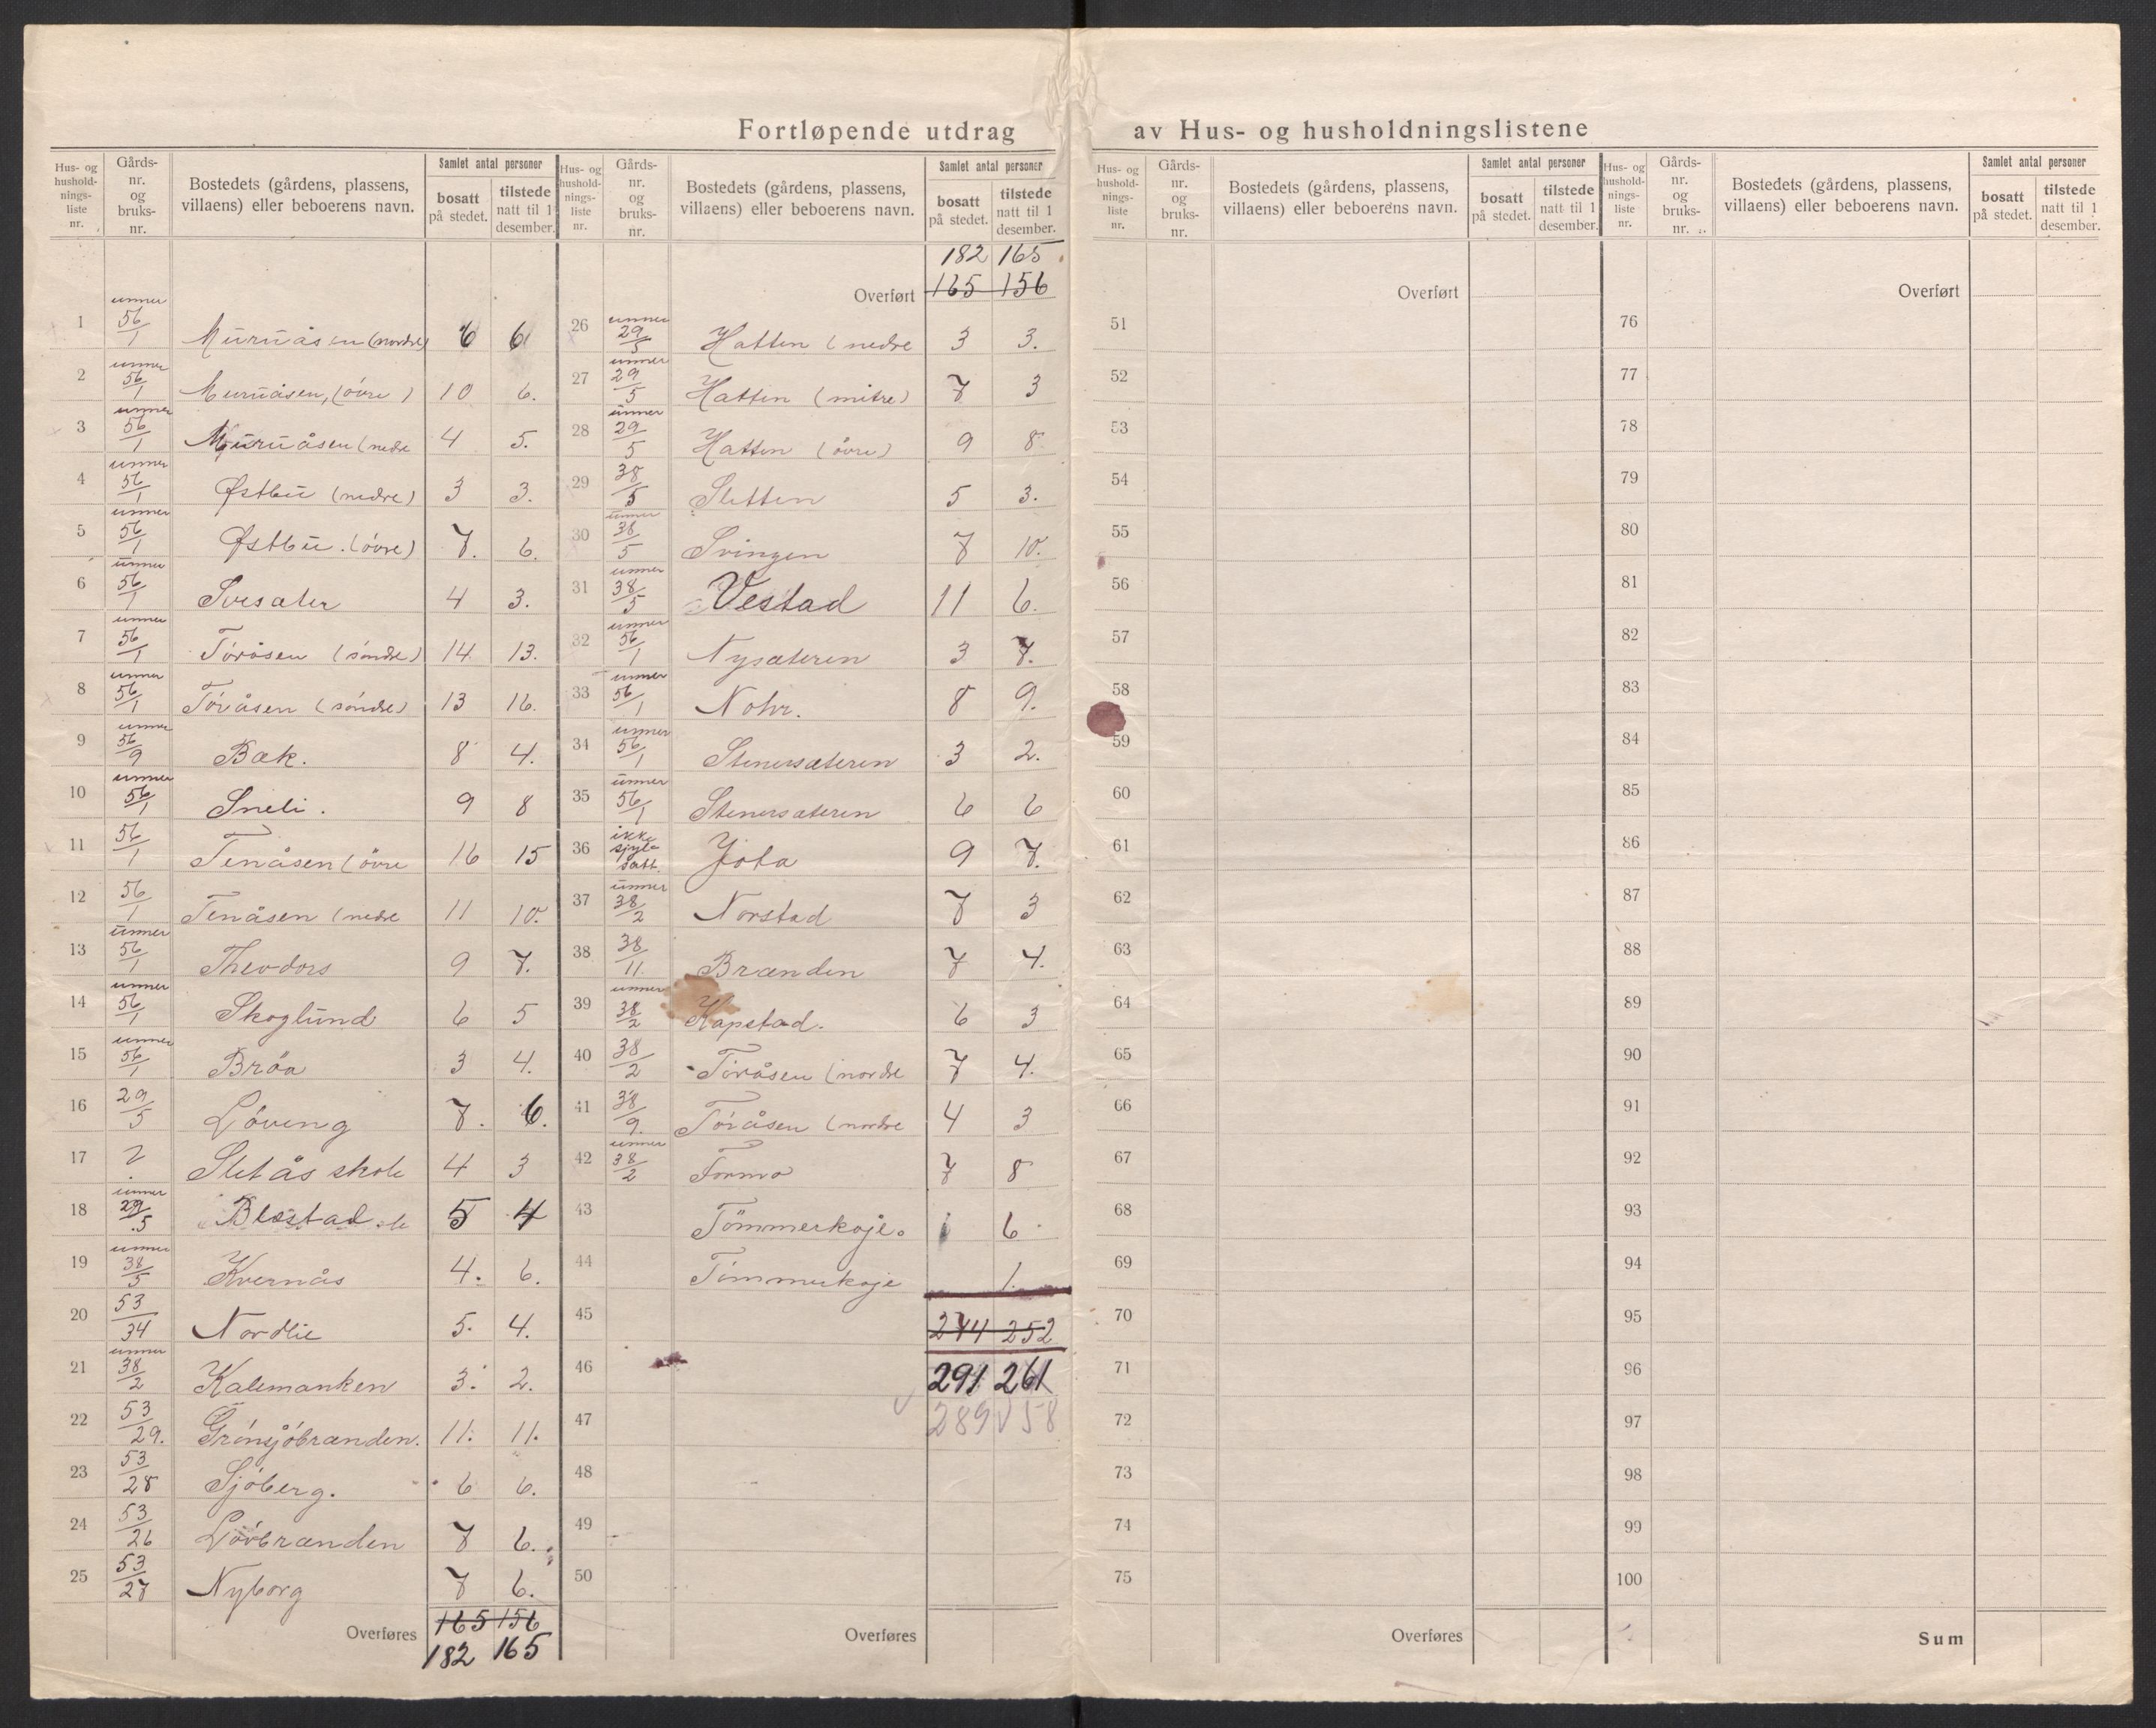 Fortløpende utdrag av Hus- og husholdningslistene
Hus- og husholdnings-liste nr. | Gårds-nr. og bruks-nr. | Bostedets (gårdens, plassens, villaens) eller beboerens navn. | Samlet antal personer | bosatt på stedet. | tilstede natt til 1 desember.
1 unner 56/1 Muruåsen (nordre) 6 6
2 unner 56/1 Muruåsen, (övre) 10 6.
3 unner 56/1 Muruåsen (nedre 4 5.
4 unner 56/1 Østbu (nedre) 3 3.
5 unner 56/1 Østbu. (övre) 7. 6.
6 unner 56/1 Svesæter 4 3.
7 unner 56/1 Töråsen (söndre) 14 13.
8 unner 56/1 Töråsen (söndre) 13 16.
9 unner 56/9 Bæk. 8 4.
10 unner 56/1 Sneli. 9 8
11 56/1 Tenåsen (övre 16 15
12 56/1 Tenåsen (nedre 11 10.
13 unner 56/1 Theodors 9 7.
14 unner 56/1 Skoglund 6 5
15 unner 56/1 Bröa 3 4.
16 29/5 Löveng 7. 6.
17 Sletås skole 4 3
18 unner 29/5 Blåstad 5 4
19 unner 38/5 Kvernås 4. 6.
20 53/34 Nordlie 5. 4.
21 unner 38/2 Kalemanken 3. 2.
22 53/29. Grönsjöbrænden. 11. 11.
23 53/28 Sjöberg. 6 6.
24 53/26 Lövbrænden 7 6.
25 53/27 Nyborg 7 6.
Overføres 165 156
182 165
Hus- og husholdnings-liste nr. | Gårds-nr. og bruks-nr. | Bostedets (gårdens, plassens, villaens) eller beboerens navn. | Samlet antal personer | bosatt på stedet. | tilstede natt til 1 desember.
182 165
Overført 165 156
26 unner 29/5 Hatten (nedre 3 3.
27 unner 29/5 Hatten (mitre) 7 3
28 unner 29/5 Hatten (övre) 9 8
29 38/5 Sletten 5 3.
30 unner 38/5 Svingen 7 10.
31 unner 38/5 Vestad 11 6.
32 unner 56/1 Nysæteren 3 7.
33 unner 56/1 Nohr. 8 9.
34 unner 56/1 Stenersæteren 3 2.
35 unner 56/1 Stenersæteren 6 6
36 ikke Jota 9 7.
37 unner 38/2 Norstad 7 3
38 38/11. Brænden 7 4.
39 unner 38/2 Kapstad. 6 3
40 38/2 Töråsen (nordre 7 4.
41 38/9. Töråsen (nordre 4 3
42 unner 38/2 Formo 7 8
43 Tömmerkoje. 6
44 Tömmerkoje 1.
45 274 252
46 291 261
47 289 58
48
49
50
Overføres
Hus- og husholdnings-liste nr. | Gårds-nr. og bruks-nr. | Bostedets (gårdens, plassens, villaens) eller beboerens navn. | Samlet antal personer | bosatt på stedet. | tilstede natt til 1 desember.
Overført
51
52
53
54
55
56
57
58
59
60
61
62
63
64
65
66
67
68
69
70
71
72
73
74
75
Overføres
Hus- og husholdnings-liste nr. | Gårds-nr. og bruks-nr. | Bostedets (gårdens, plassens, villaens) eller beboerens navn. | Samlet antal personer | bosatt på stedet. | tilstede natt til 1 desember.
Overført
76
77
78
79
80
81
82
83
84
85
86
87
88
89
90
91
92
93
94
95
96
97
98
99
100
Sum